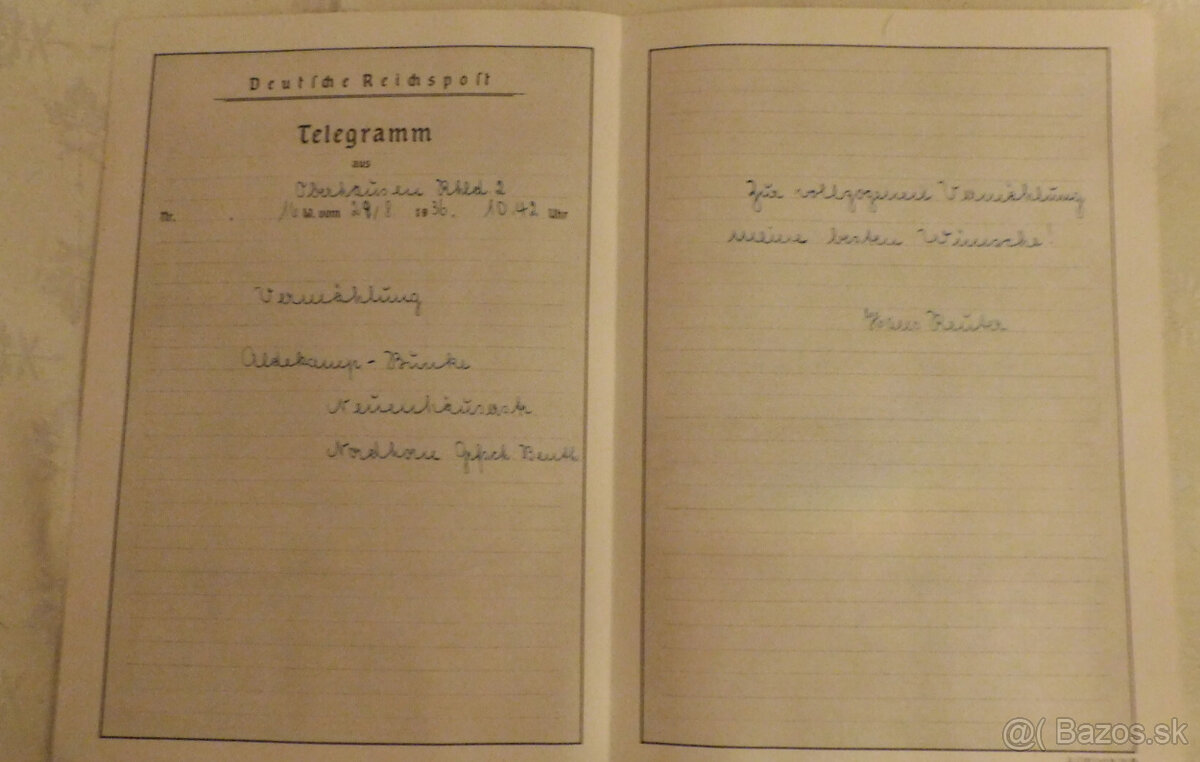 Deutsche Reichspost
Telegramm
aus
Oberhausen Rhld 2
Nr. 16 W. vom 29/8 1936. 10 42 Uhr
Vermählung
Aldekamp - Bünke
Neuenhauserstr
Nordhorn Grfsch Benth
Zur vollzogenen Vermählung
meine besten Wünsche!
Hans Reuter
@( Bazos.sk